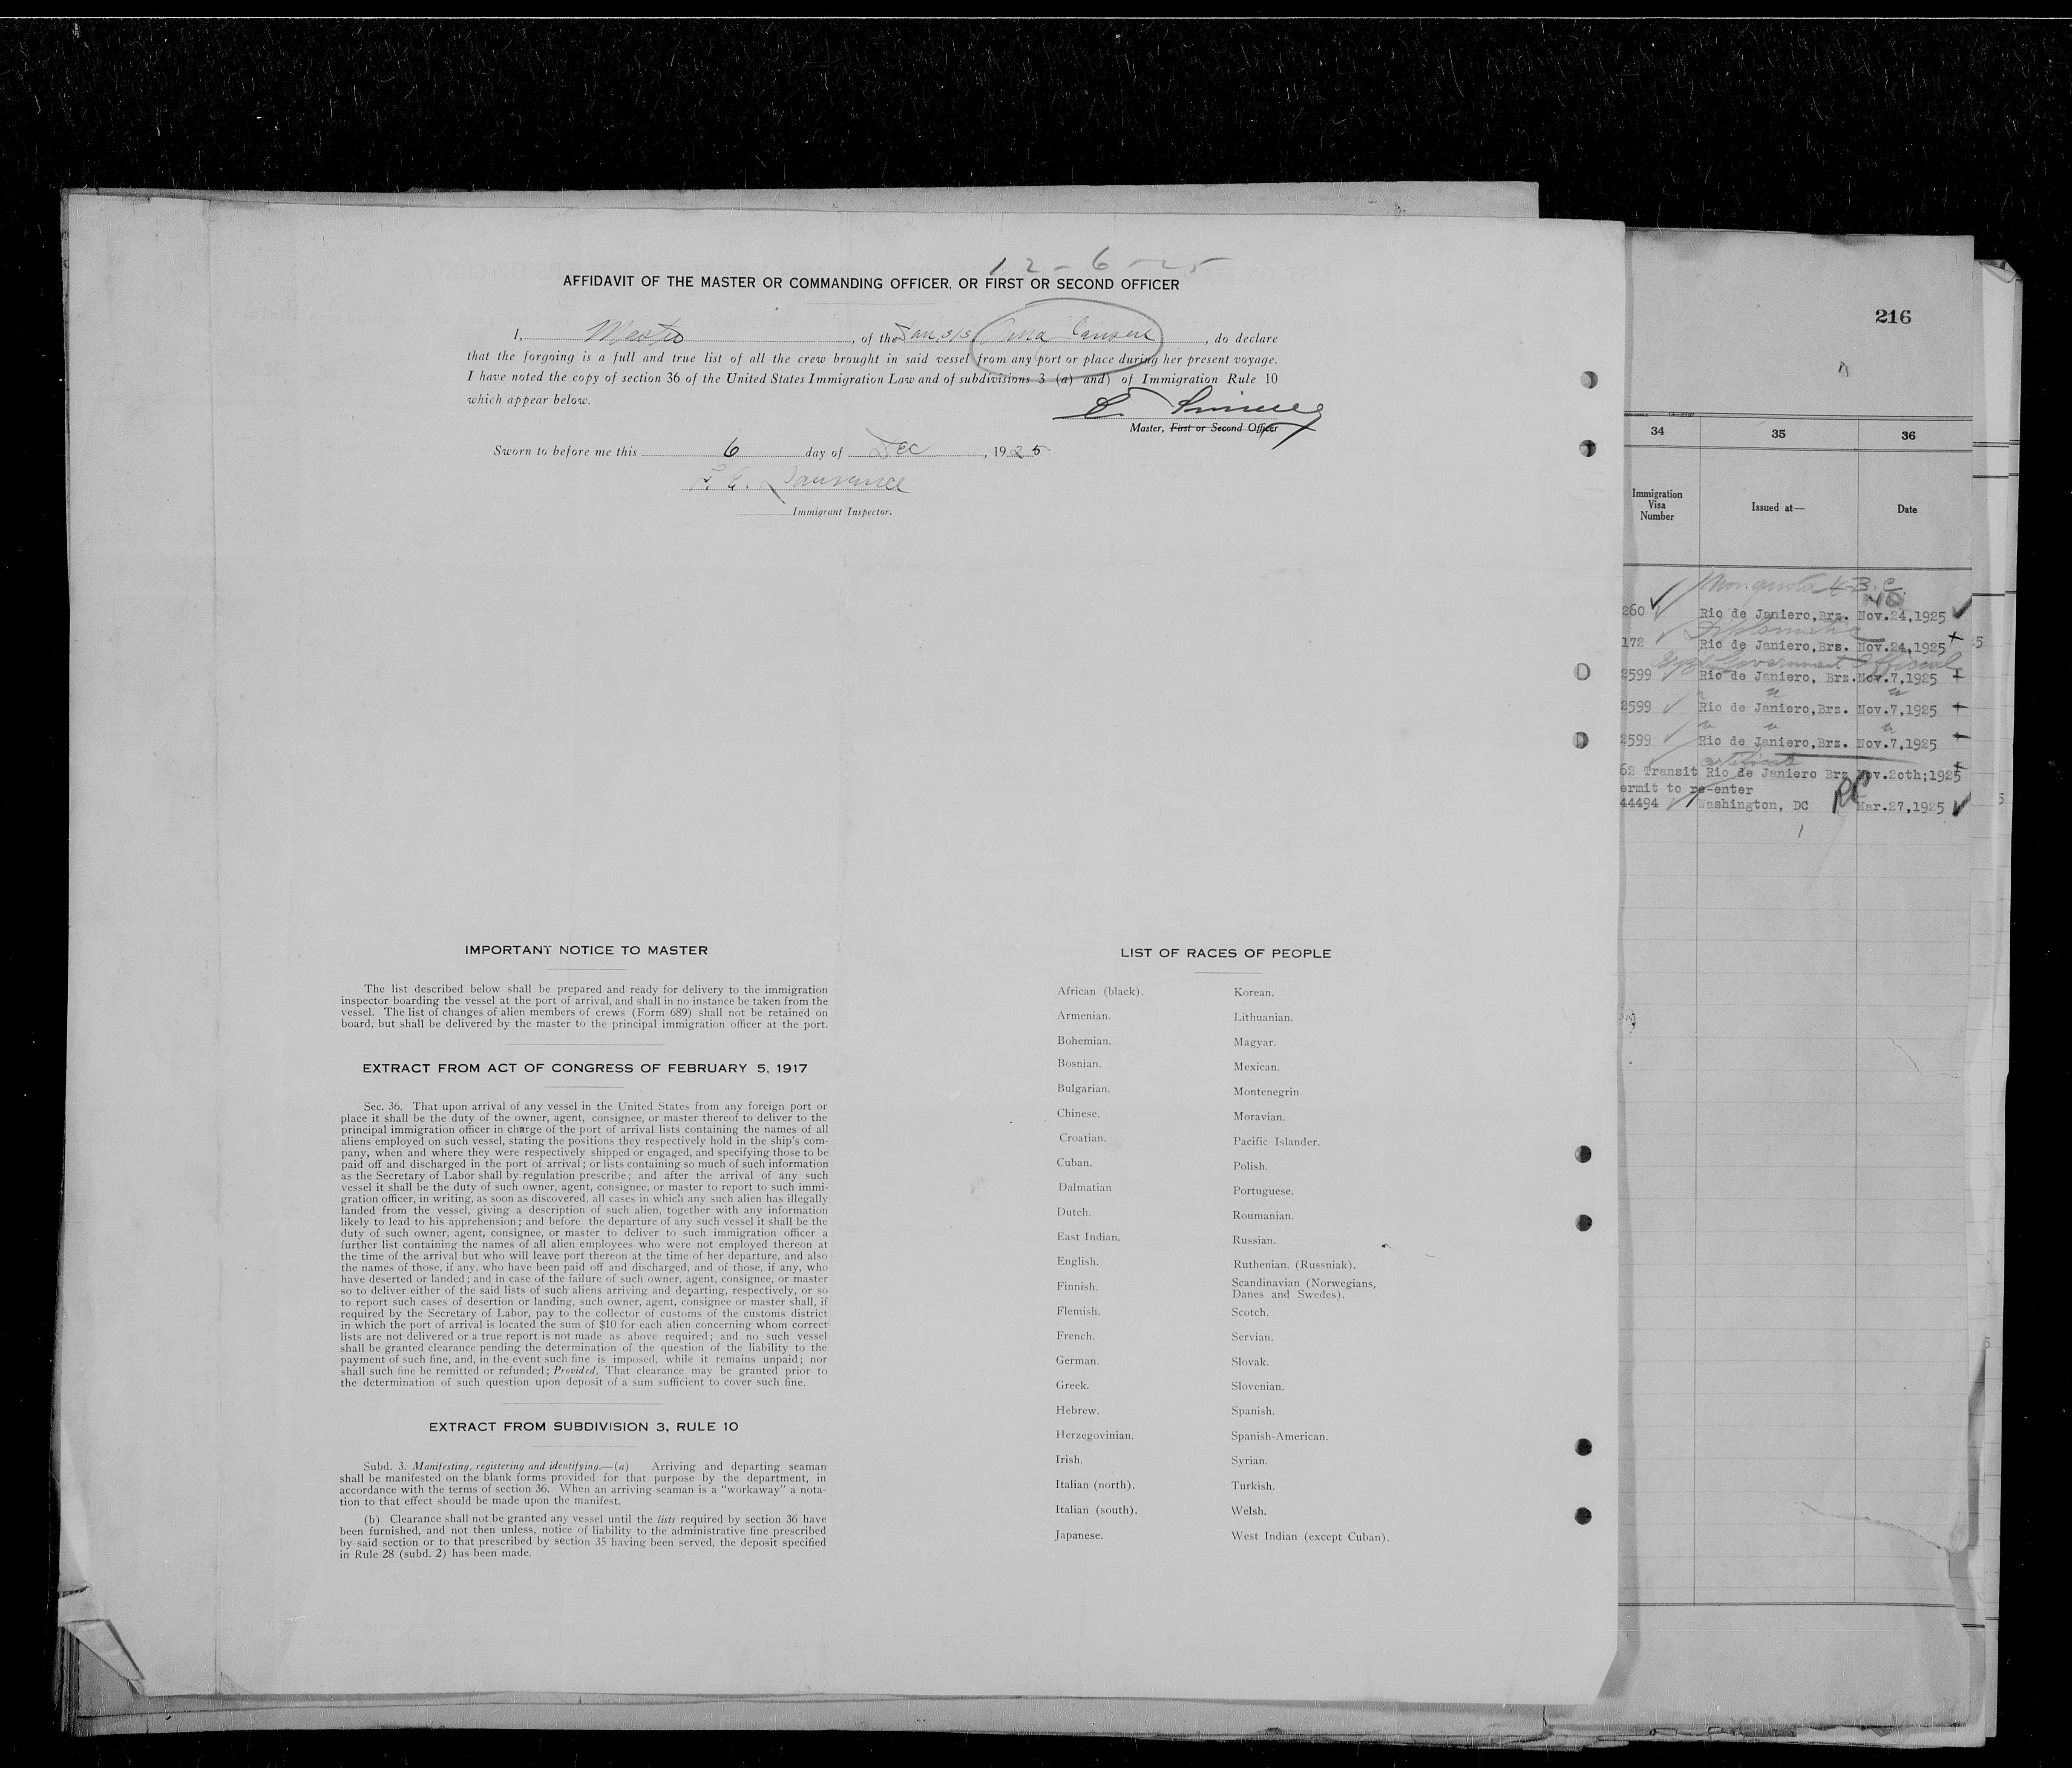 12-6-25
AFFIDAVIT OF THE MASTER OR COMMANDING OFFICER, OR FIRST OR SECOND OFFICER
I, Master, of the Dan s/s, do declare
that the forgoing is a full and true list of all the crew brought in said vessel from any port or place during her present voyage.
I have noted the copy of section 36 of the United States Immigration Law and of subdivisions 3 (a) and) of Immigration Rule 10
which appear below.
Master, First or Second Officer
Sworn to before me this 6 day of Dec, 1925
Immigrant Inspector.
IMPORTANT NOTICE TO MASTER
The list described below shall be prepared and ready for delivery to the immigration
inspector boarding the vessel at the port of arrival, and shall in no instance be taken from the
vessel. The list of changes of alien members of crews (Form 689) shall not be retained on
board, but shall be delivered by the master to the principal immigration officer at the port.
EXTRACT FROM ACT OF CONGRESS OF FEBRUARY 5, 1917
Sec. 36. That upon arrival of any vessel in the United States from any foreign port or
place it shall be the duty of the owner, agent, consignee, or master thereof to deliver to the
principal immigration officer in charge of the port of arrival lists containing the names of all
aliens employed on such vessel, stating the positions they respectively hold in the ship's com-
pany, when and where they were respectively shipped or engaged, and specifying those to be
paid off and discharged in the port of arrival; or lists containing so much of such information
as the Secretary of Labor shall by regulation prescribe; and after the arrival of any such
vessel it shall be the duty of such owner, agent, consignee, or master to report to such immi-
gration officer, in writing, as soon as discovered, all cases in which any such alien has illegally
landed from the vessel, giving a description of such alien, together with any information
likely to lead to his apprehension; and before the departure of any such vessel it shall be the
duty of such owner, agent, consignee, or master to deliver to such immigration officer a
further list containing the names of all alien employees who were not employed thereon at
the time of the arrival but who will leave port thereon at the time of her departure, and also
the names of those, if any, who have been paid off and discharged, and of those, if any, who
have deserted or landed; and in case of the failure of such owner, agent, consignee, or master
so to deliver either of the said lists of such aliens arriving and departing, respectively, or so
to report such cases of desertion or landing, such owner, agent, consignee or master shall, if
required by the Secretary of Labor, pay to the collector of customs of the customs district
in which the port of arrival is located the sum of $10 for each alien concerning whom correct
lists are not delivered or a true report is not made as above required; and no such vessel
shall be granted clearance pending the determination of the question of the liability to the
payment of such fine, and, in the event such fine is imposed, while it remains unpaid; nor
shall such fine be remitted or refunded; Provided, That clearance may be granted prior to
the determination of such question upon deposit of a sum sufficient to cover such fine.
EXTRACT FROM SUBDIVISION 3, RULE 10
Subd. 3. Manifesting, registering and identifying.—(a) Arriving and departing seaman
shall be manifested on the blank forms provided for that purpose by the department, in
accordance with the terms of section 36. When an arriving seaman is a "workaway" a nota-
tion to that effect should be made upon the manifest.
(b) Clearance shall not be granted any vessel until the lists required by section 36 have
been furnished, and not then unless, notice of liability to the administrative fine prescribed
by said section or to that prescribed by section 35 having been served, the deposit specified
in Rule 28 (subd. 2) has been made.
LIST OF RACES OF PEOPLE
African (black).
Armenian.
Bohemian.
Bosnian.
Bulgarian.
Chinese.
Croatian.
Cuban.
Dalmatian
Dutch.
East Indian.
English.
Finnish.
Flemish.
French.
German.
Greek.
Hebrew.
Herzegovinian.
Irish.
Italian (north).
Italian (south).
Japanese.
Korean.
Lithuanian.
Magyar.
Mexican.
Montenegrin
Moravian.
Pacific Islander.
Polish.
Portuguese.
Roumanian.
Russian.
Ruthenian. (Russniak).
Scandinavian (Norwegians,
Danes and Swedes).
Scotch.
Servian.
Slovak.
Slovenian.
Spanish.
Spanish-American.
Syrian.
Turkish.
Welsh.
West Indian (except Cuban).
216
34 35 36
Immigration
Visa
Number
Issued at—
Date
260 Rio de Janiero,Brz. Nov.24,1925
Diplomatic
172 Rio de Janiero,Brz. Nov.24,1925
Government Official
2599 Rio de Janiero, Brz. Nov.7,1925
" "
2599 Rio de Janiero,Brz. Nov.7,1925
" "
2599 Rio de Janiero,Brz. Nov.7,1925
certificate
62 Transit Rio de Janiero Brz Nov.2oth;1925
ermit to re-enter
44494 Washington, DC Mar.27,1925